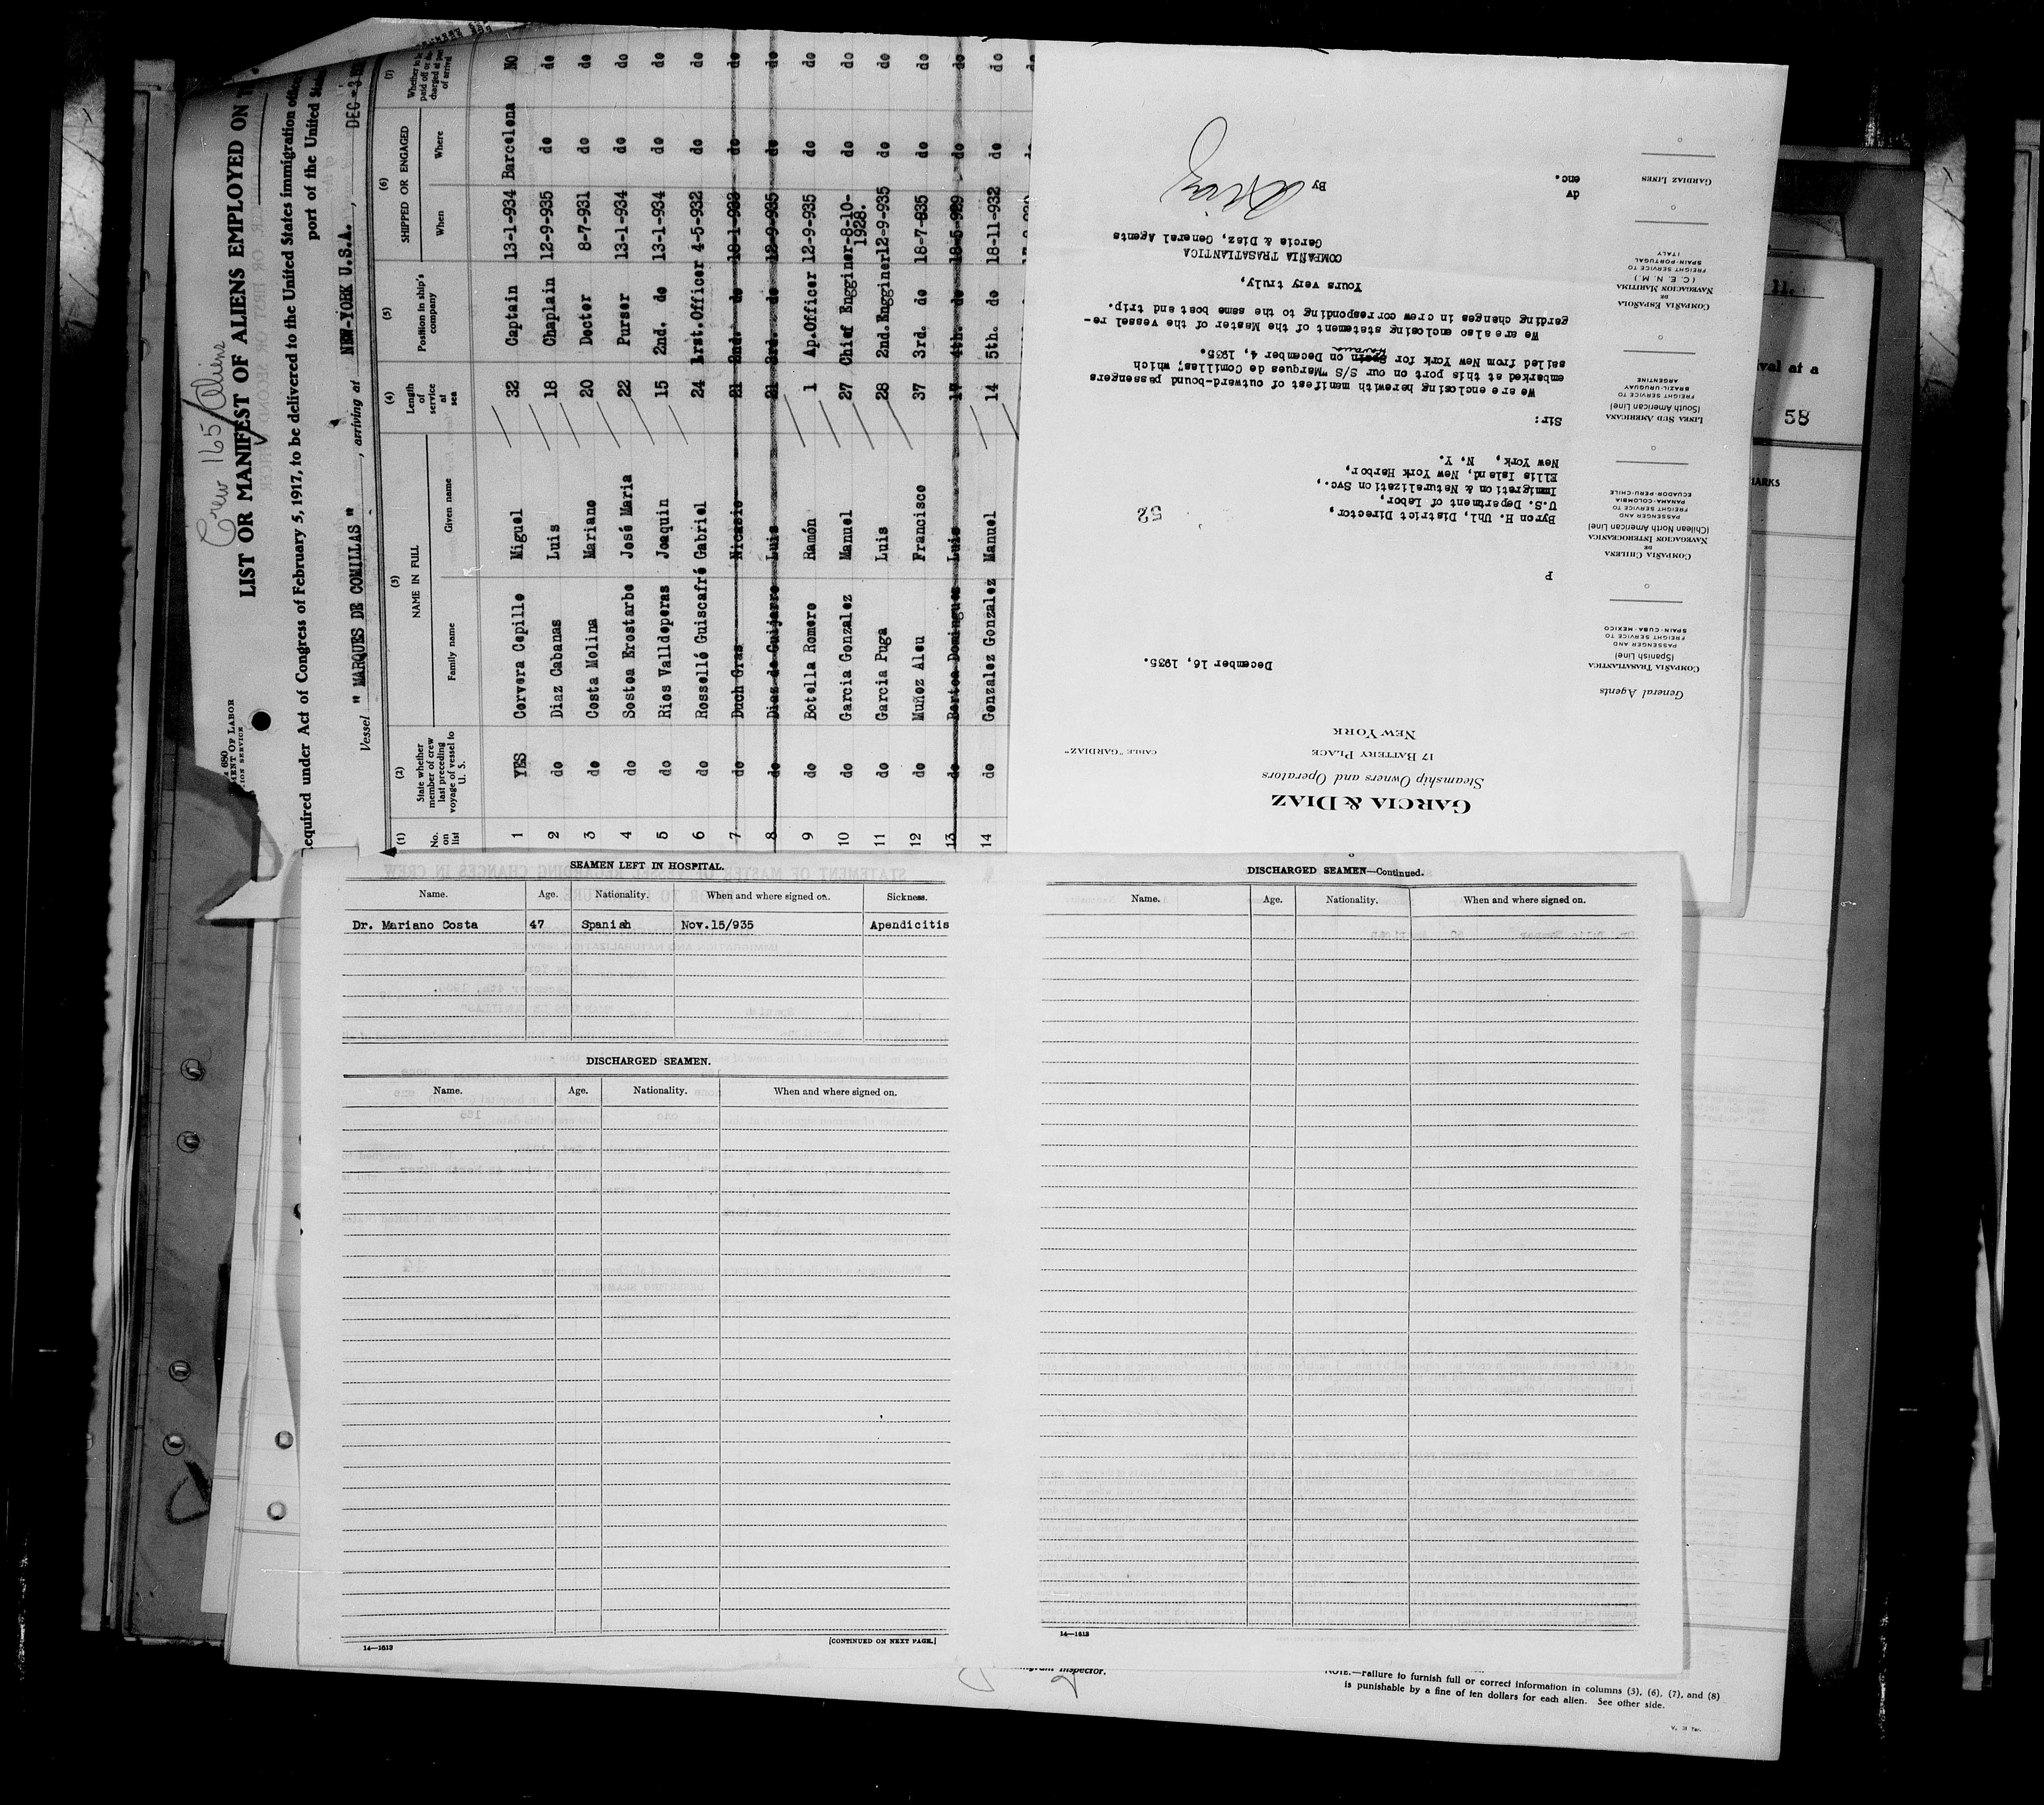 Crew 165/Aliens
LIST OR MANIFEST OF ALIENS EMPLOYED ON
680
OF LABOR
SERVICE
required under Act of Congress of February 5, 1917, to be delivered to the United States immigration
port of the United
Vessel " MARQUES DE COMILLAS " , arriving at NEW-YORK U.S.A. , DEC - 3
(1) (2) (3) (4) (5) (6) (7)
No. on list
State whether member of crew last preceding voyage of vessel to U. S.
NAME IN FULL
Family name Given name
Length of service at sea
Position in ship's company
SHIPPED OR ENGAGED
When Where
1 YES Cervera Cepillo Miguel 32 Captain 13-1-934 Barcelona NO
2 do Diaz Cabanas Luis 18 Chaplain 12-9-935 do do
3 do Costa Molina Mariano 20 Docter 8-7-931 do do
4 do Sostoa Erostarbe José Maria 22 Purser 13-1-934 do do
5 do Rios Valldeperas Joaquin 15 2nd. do 13-1-934 do do
6 do Rosselló Guiscafré Gabriel 24 1rst.Officer 4-5-932 do do
7 do Duch Gras Nicasio 21 2nd. do 18-1-933 do do
8 do Diaz de Guijarro Luis 21 3rd. do 12-9-935 do do
9 do Botella Romero Ramón 1 Ap.Officer 12-9-935 do do
10 do Garcia Gonzalez Manuel 27 Chief Engginer-8-10-1928. do do
11 do Garcia Puga Luis 28 2nd.Engginer12-9-935 do do
12 do Muñoz Aleu Francisco 37 3rd. do 18-7-835 do do
13 do Dominguez Luis 17 4th. do 18-5-929 do do
14 do Gonzalez Gonzalez Manuel 14 5th. do 18-11-932 do do
GARCIA & DIAZ
Steamship Owners and Operators
17 BATTERY PLACE
NEW YORK
CABLE "GARDIAZ"
General Agents
COMPAÑIA TRASATLANTICA
(Spanish Line)
PASSENGER AND
FREIGHT SERVICE TO
SPAIN-CUBA-MEXICO
COMPAÑIA CHILENA
DE
NAVEGACION INTEROCEANICA
(Chilean North American Line)
PASSENGER AND
FREIGHT SERVICE TO
PANAMA-COLOMBIA
ECUADOR-PERU-CHILE
LINEA SUD AMERICANA
(South American Line)
FREIGHT SERVICE TO
BRAZIL-URUGUAY
ARGENTINE
COMPAÑIA ESPAÑOLA
DE
NAVEGACION MARITIMA
(C. E. N. M.)
FREIGHT SERVICE TO
SPAIN-PORTUGAL
ITALY
GARDIAZ LINES
December 16, 1935.
P
52
Byron H. Uhl, District Director,
U.S. Department of Labor,
Immigration & Naturalization Svc.,
Ellis Island, New York Harbor,
New York, N. Y.
Sir:
We are enclosing herewith manifest of outward-bound passengers
embarked at this port on our S/S "Marques de Comillas," which
Havana
sailed from New York for Spain on December 4, 1935.
We are also enclosing statement of the Master of the vessel re-
garding changes in crew corresponding to the same boat and trip.
Yours very truly,
COMPAÑIA TRASATLANTICA
Garcia & Diaz, General Agents
By
dv
enc.
SEAMEN LEFT IN HOSPITAL.
Name. Age. Nationality. When and where signed on. Sickness.
Dr. Mariano Costa 47 Spanish Nov.15/935 Apendicitis
DISCHARGED SEAMEN.
Name. Age. Nationality. When and where signed on.
14—1613 [CONTINUED ON NEXT PAGE.]
DISCHARGED SEAMEN—Continued.
Name. Age. Nationality. When and where signed on.
14—1613
11.
val at a
58
ARKS
Inspector.
NOTE.—Failure to furnish full or correct information in columns (5), (6), (7), and (8)
is punishable by a fine of ten dollars for each alien. See other side.